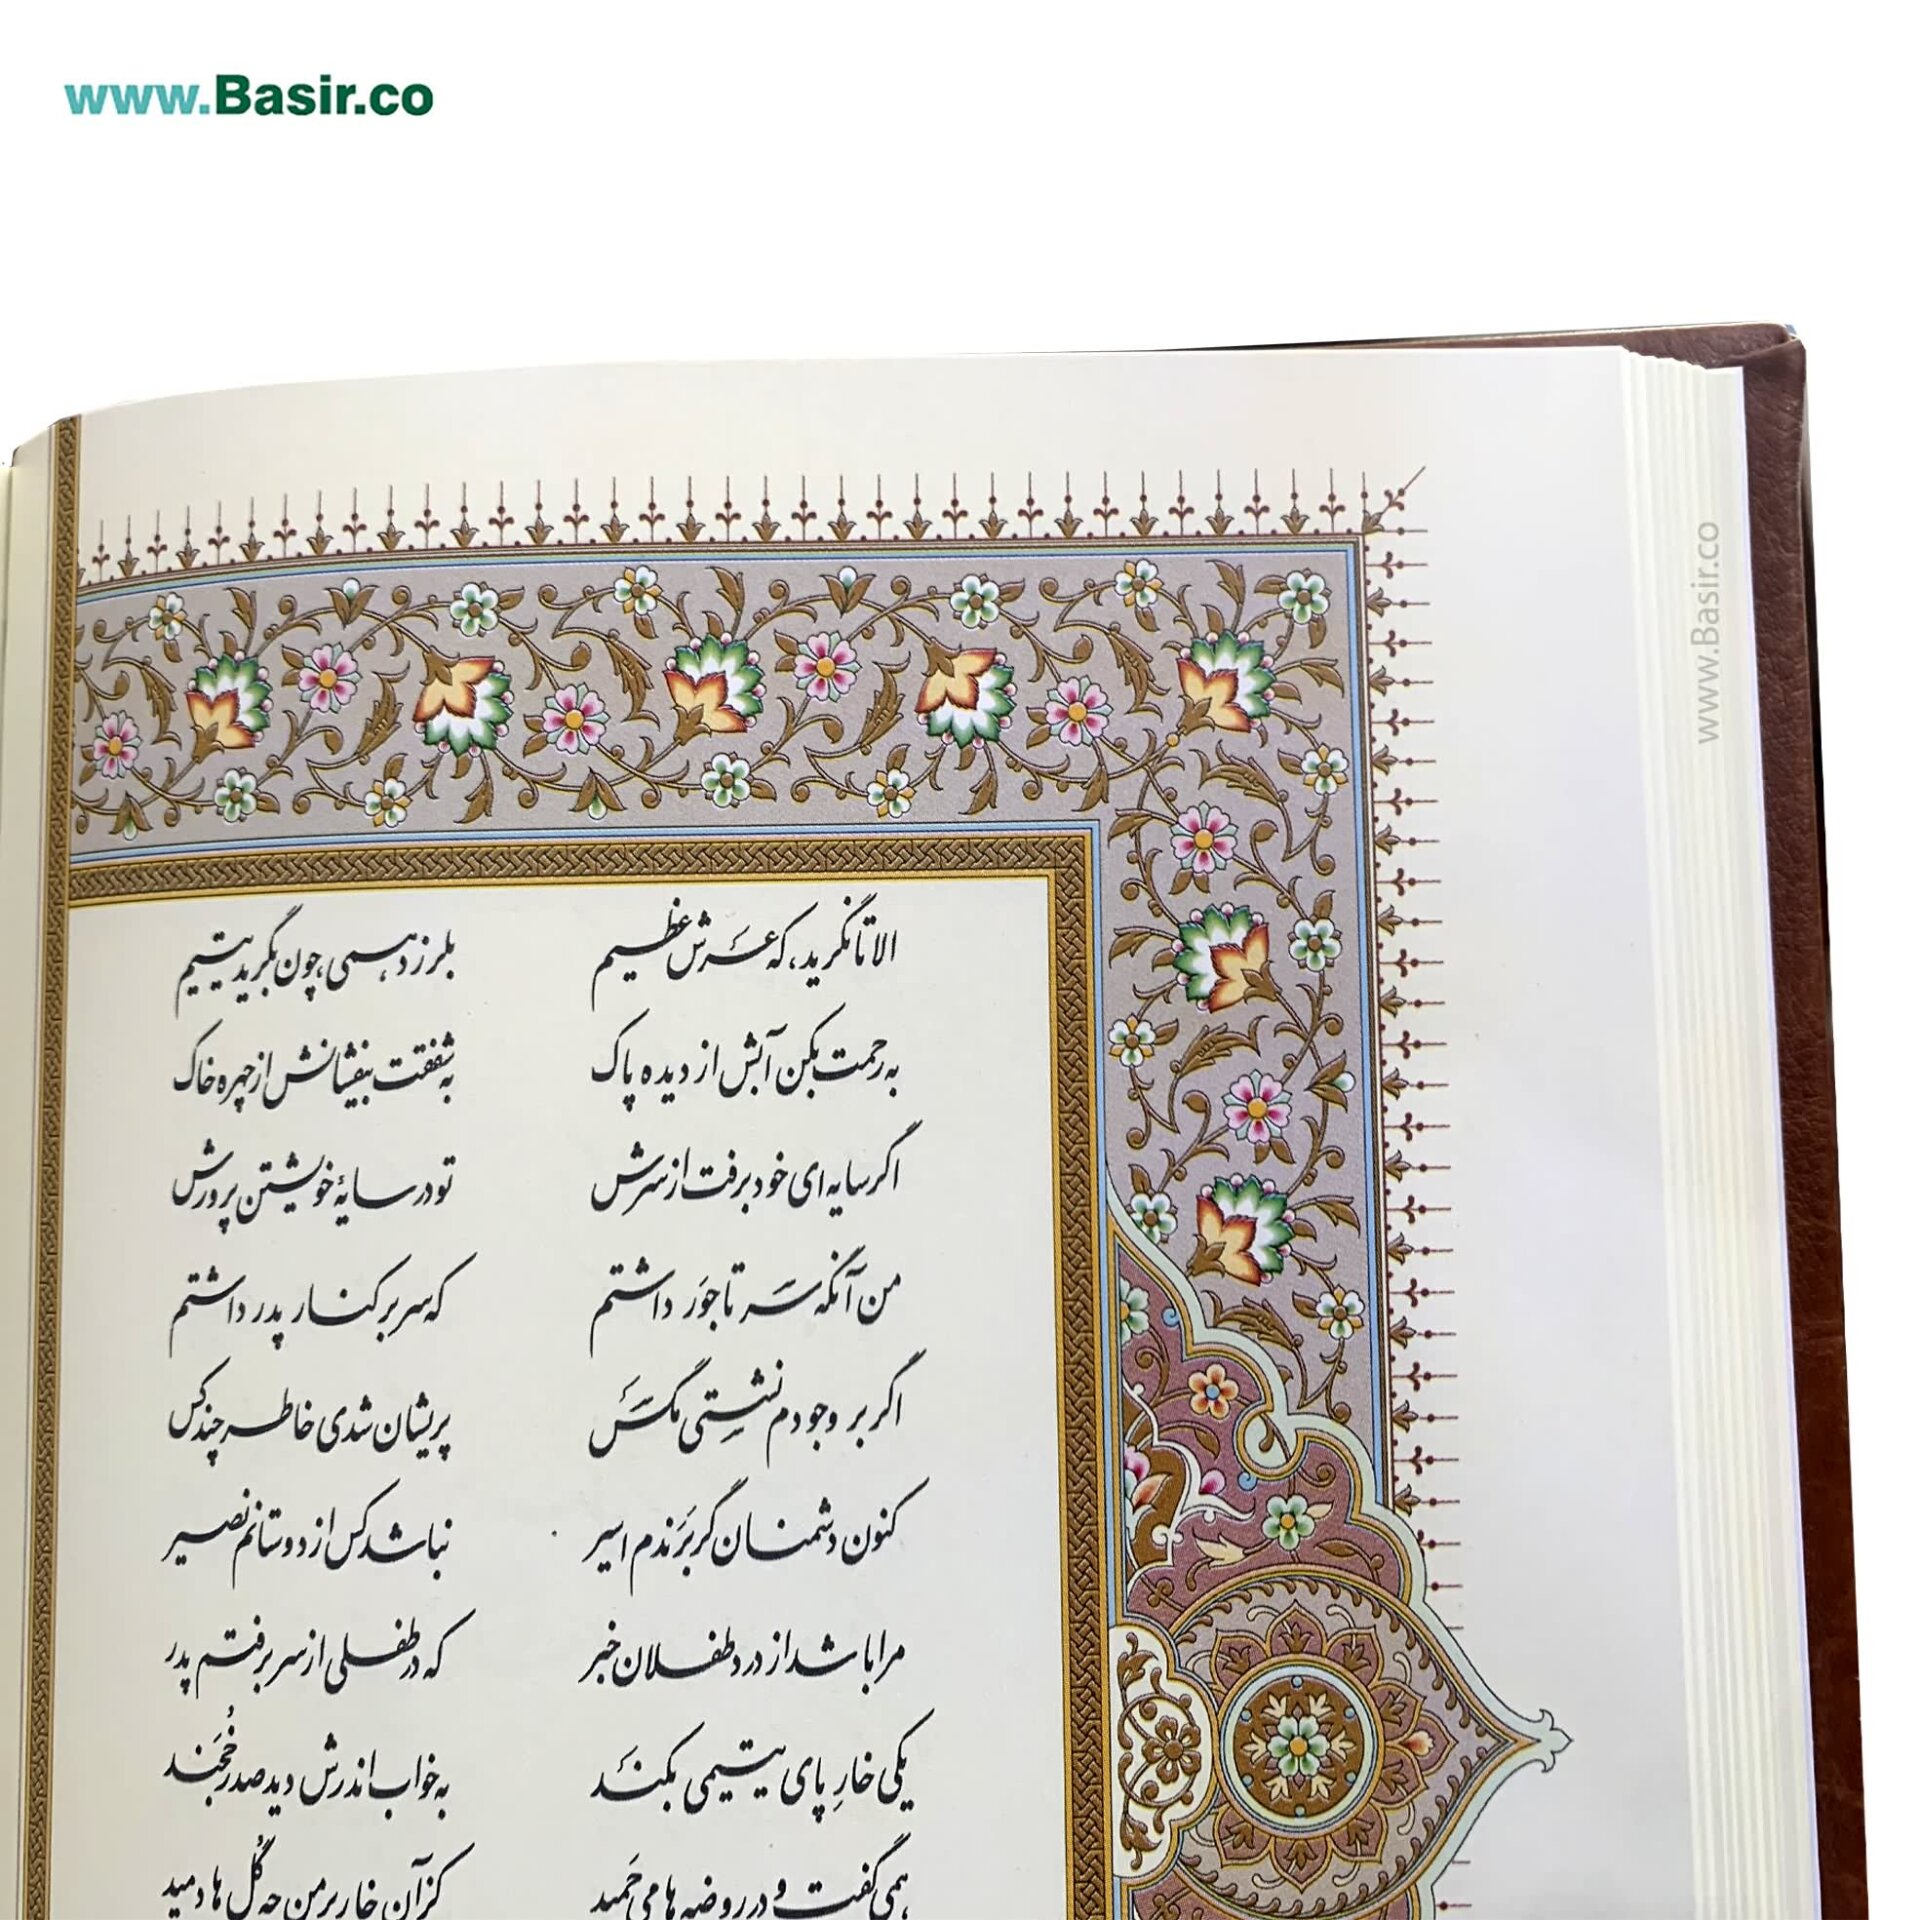 www.Basir.co
الا تا نگرید، که عَرش عظیم بلرزد همی، چون بگرید یتیم
به رحمت بکن آبش از دیده پاک به شفقت بیفشانش از چهره خاک
اگر سایه‌ای خود برفت از سرش تو در سایهٔ خویشتن پرورش
من آنگه سَر تاجوَر داشتم که سر بر کنار پدر داشتم
اگر بر وجودم نشِستی مگَس پریشان شدی خاطر چند کس
کنون دشمنان گر برَندم اسیر نباشد کس از دوستانم نصیر
مرا باشد از درد طفلان خبر که در طفلی از سر برفتم پدر
یکی خارِ پای یتیمی بکَند به خواب اندرش دید صدر خُجَند
همی گفت و در روضه‌ها می‌چَمید کز آن خار بر من چه گُل‌ها دمید
www.Basir.co